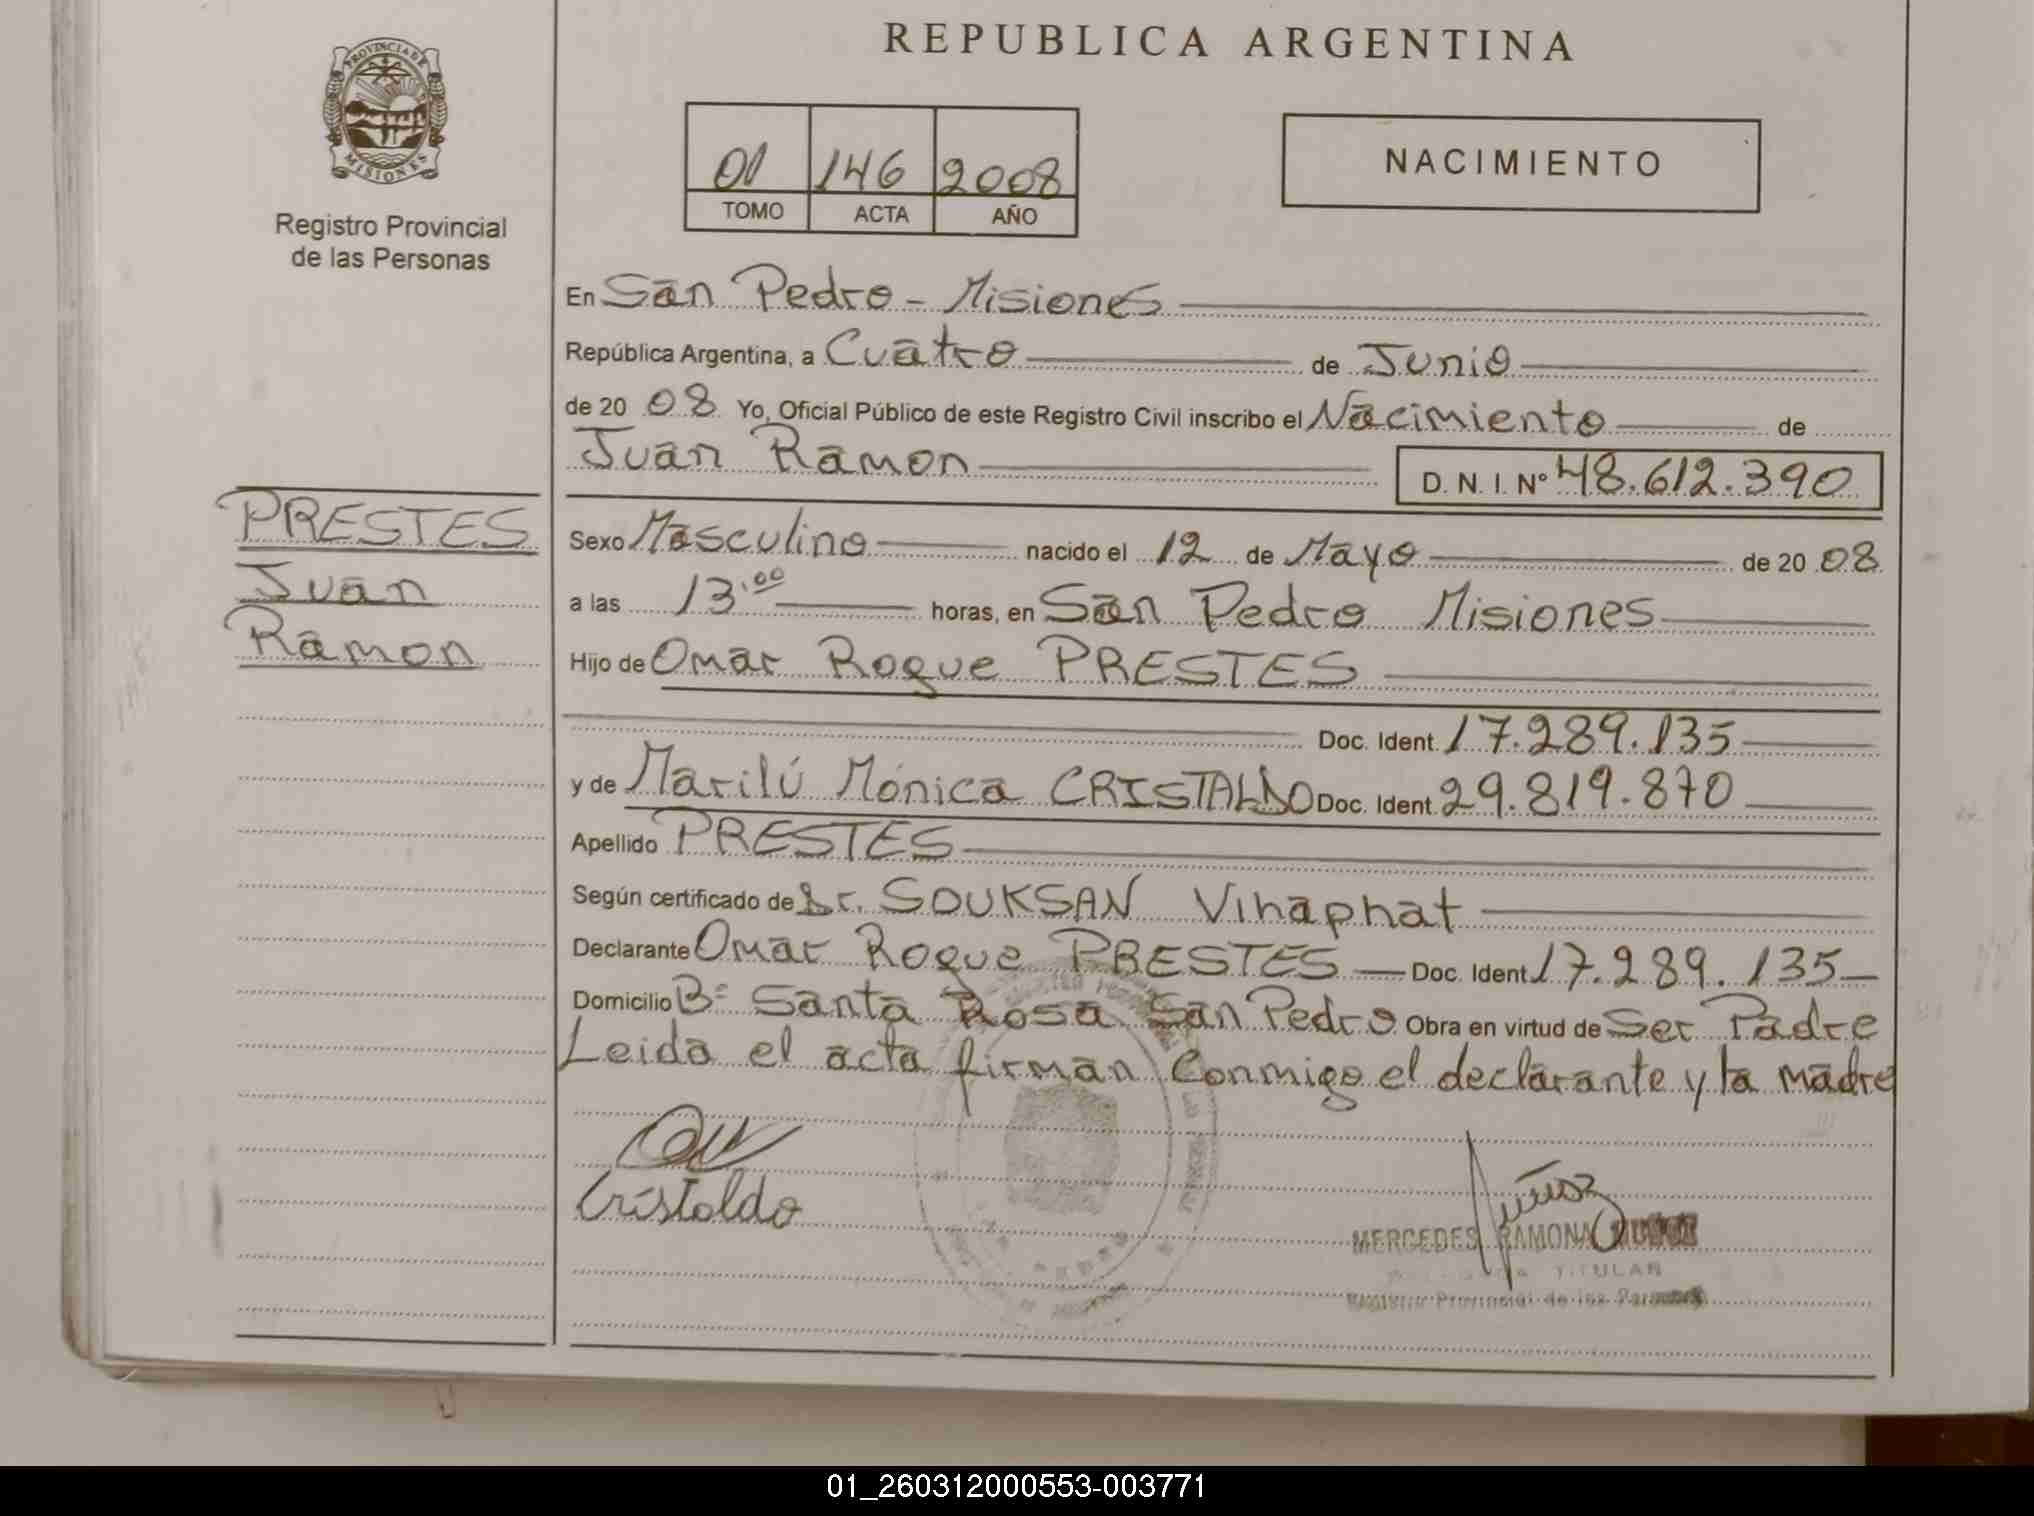 REPUBLICA ARGENTINA
PROVINCIA DE
MISIONES
Registro Provincial
de las Personas
01 146 2008
TOMO ACTA AÑO
NACIMIENTO
En San Pedro - Misiones
República Argentina, a Cuatro de Junio
de 20 08 Yo, Oficial Público de este Registro Civil inscribo el Nacimiento de
Juan Ramon D. N. I. Nº 48.612.390
PRESTES
Juan
Ramon
Sexo Masculino nacido el 12 de Mayo de 20 08
a las 13:00 horas, en San Pedro Misiones
Hijo de Omar Roque PRESTES
Doc. Ident. 17.289.135
y de Marilú Mónica CRISTALDO Doc. Ident. 29.819.870
Apellido PRESTES
Según certificado de Dr. SOUKSAN Vihaphat
Declarante Omar Roque PRESTES Doc. Ident. 17.289.135
Domicilio Bº Santa Rosa San Pedro Obra en virtud de Ser Padre
Leida el acta firman Conmigo el declarante y la madre
Cristaldo
MERCEDES RAMONA
TITULAR
Registro Provincial de las Personas
01_260312000553-003771